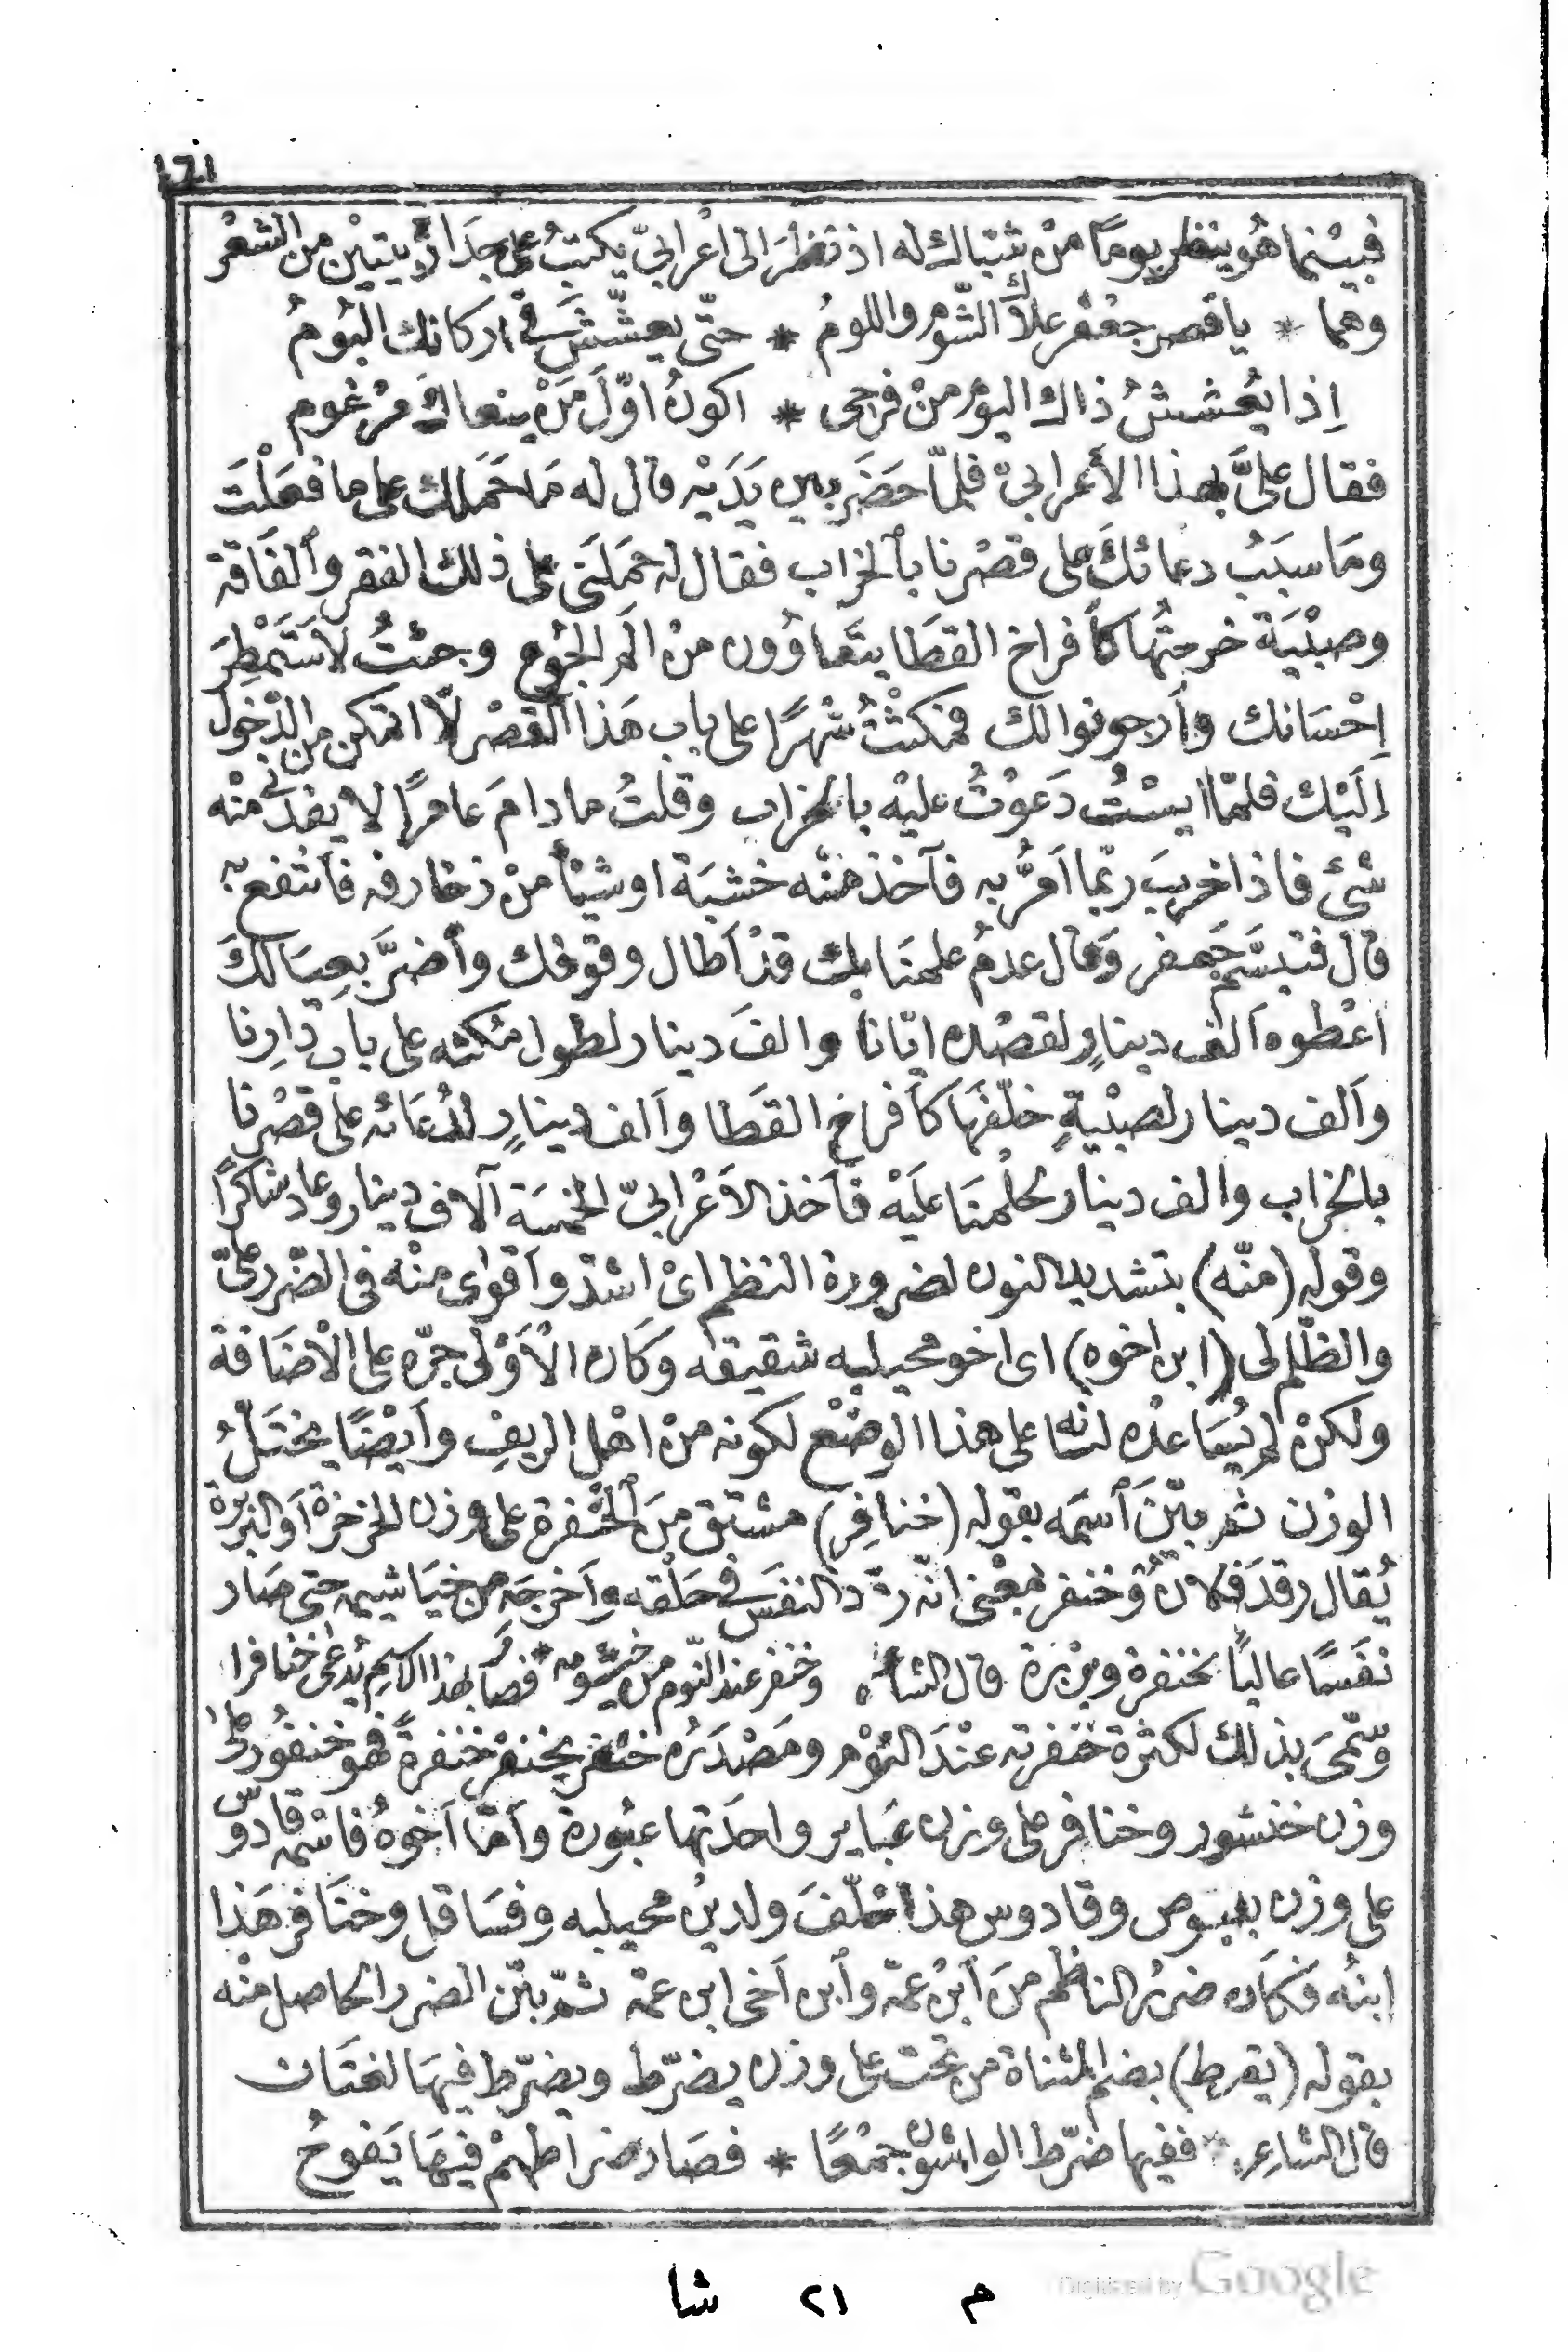 ١٦١
فبينما هو ينظر يوماً من شباك له اذ نظر الى اعرابيّ يكتبُ على جدار بيتين من الشعر
وهما * يا قصر جعفر علاك الشّوم واللومُ * حتّى يعشّشَ في اركانك البُومُ
اِذا يُعششُ ذاك البومُ من فرحي * اكونُ اوّلَ مَنْ ينعاك مرغوم
فقال علىَّ بهذا الأعرابيّ فلمّا حضَر بين يَدَيْه قال له مَا حَمَلك على ما فعلْتَ
ومَا سبَبُ دعائكَ على قصْرنا بالخراب فقال له حمَلَنى على ذلك الفقر والفَاقة
وصبْيَة خرجتُها كأفراخ القطَا يتَعاوُون منْ الَم الجُوع وجئتُ لأستَمْطِرَ
اِحْسَانك وأرجو نوالك فمكثْتُ شهرًا على باب هَذا القصْر لا اتمكن من الدّخول
اِلَيْك فلمّا ايسْتُ دَعوْتُ عليْه بالخراب وقلتُ ما دامَ عامرًا لا يفدنى منْه
شئ فاذا خربَ ربّما اَمُرُّ به فآخذ منْه خشبَة او شيئاً منْ زخارفه فأنتفع به
قال فتبسَّم جَعفر وَقال عدمُ علمنَا بك قدْ أطال وقوفك وأضرَّ بعِيَالكَ
اعْطوه اَلف دينارٍ لقصْده ايّانا والفَ دينار لطول مُكثه على باب دَارِنا
واَلف دينار لصبْيةٍ خلّفهَا كأفراخ القطَا واَلف دينارٍ لدُعَائه على قصْرنا
بالخراب والف دينار لحلْمنَا علَيْه فأخذ الأعْرابيّ الخمسَة آلاف دينار وعاد شاكرًا
وقوله (منّه) بتشديد النون لضرورة النظم اىْ اشدّ واَقوى منْه فى الضّرر علىّ
والظّلم لى (ابن اخوه) اى اخو محيلبه شقيقه وكَان الْأوْلى جرّه على الْاضَافة
ولكنْ لم يُسَاعدْه لسَانه على هذا الوضْع لكونه منْ اهْل الريفِ وأيْضًا يختَلُّ
الوزن ثم بيّنَ اَسمَه بقوله (خنافِر) مشتق منَ الخنْفرة على وزن الخرخرة اَو البربرة
يُقال رقدَ فلانٌ وَخنفر بمعْنى انّه ردّد النفَس فى حَلْقه واَخرجَه من خيَاشيمه حتى صَار
نفَسًا عاليًا بخنفرة وبرْبرة قال الشاعر وخنفر عند النّوم من خيشومه * فصَار بهذا الاسم يُدعى خنافرا
وسُمّىَ بذلك لكثرة خَنفرته عنْدَ النّوْم ومَصْدَرُه خنْفر يخنفرْ خنفرةً فهو خنفُور على
وزن خنشور وخنافر على وزن عَبَاير واحدَتها عبُورة واَمّا اَخوهُ فاسْمه قادوس
على وزن بعبوص وقادوس هذا خلّفَ ولديْن محيلبه وفسَاقل وخنَافر هَذا
ابنُه فكَان ضررُ الناظم منَ اَبنْ عمّه وأبن اَخى ابن عمّه ثمّ بيّن الضرر الحاصل منْه
بقوله (يقرط) بضم المثناة من تحت على وزن يضرّط ويضرّط فيهَا لغتَان
قال الشاعِر * ففيها ضرّط الواشون جمْعًا * فصَار ضراطهمْ فيهَا يَفوحُ
م ٢١ شا
Digitized by Google